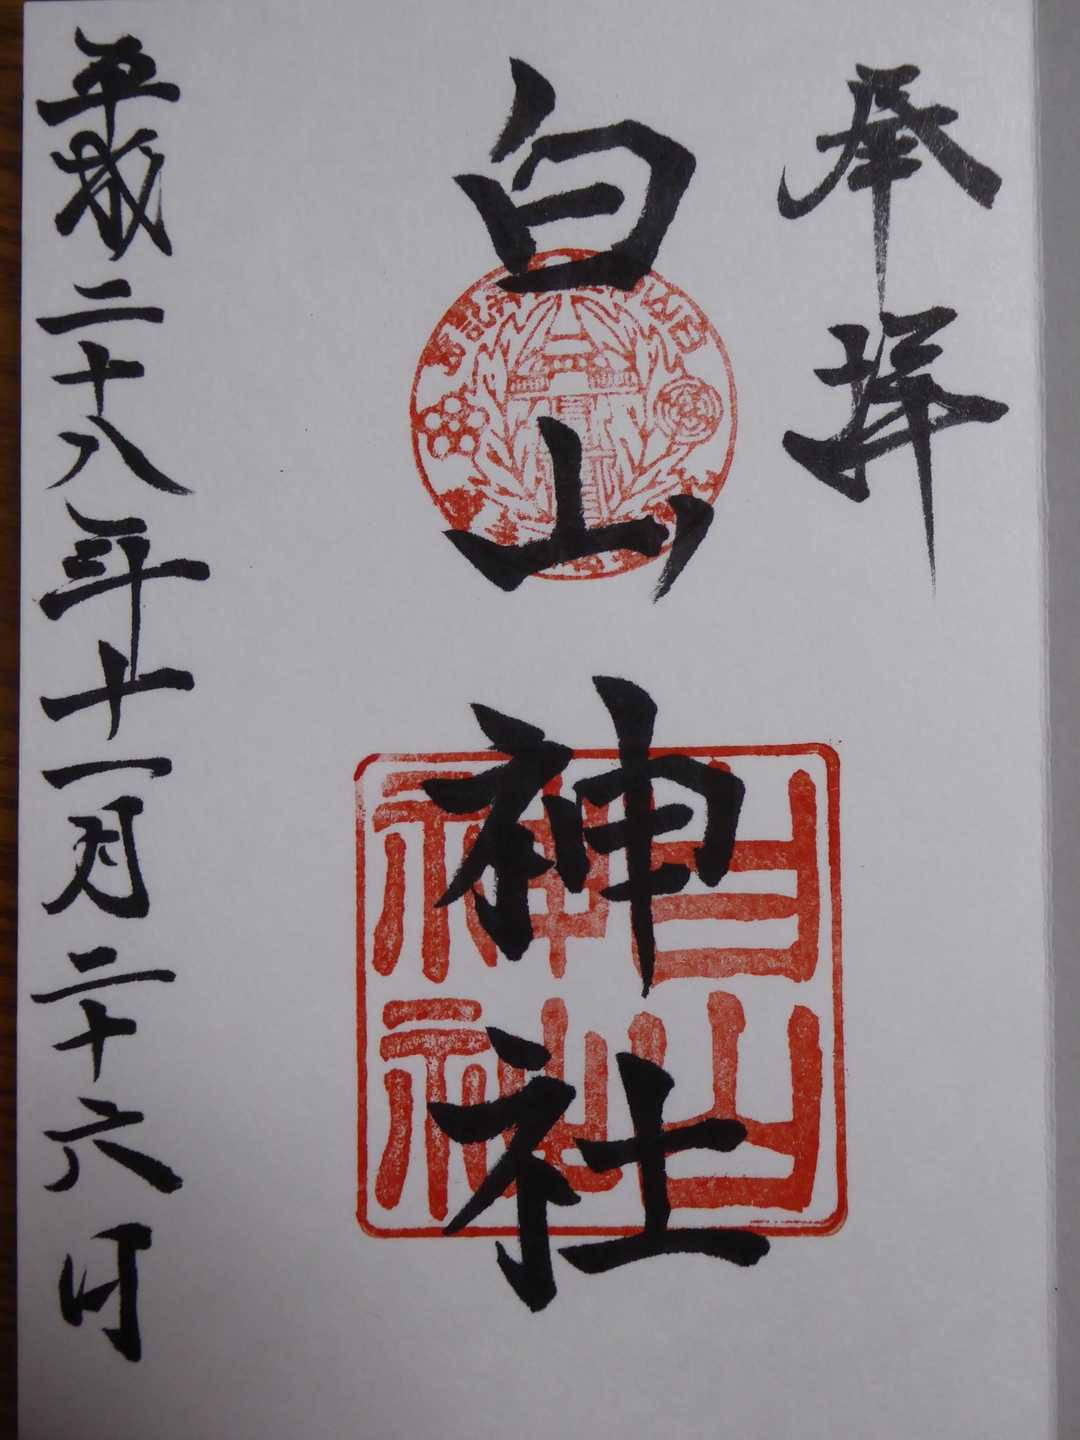 奉拝
白山神社
白山神社
平成二十八年十一月二十六日